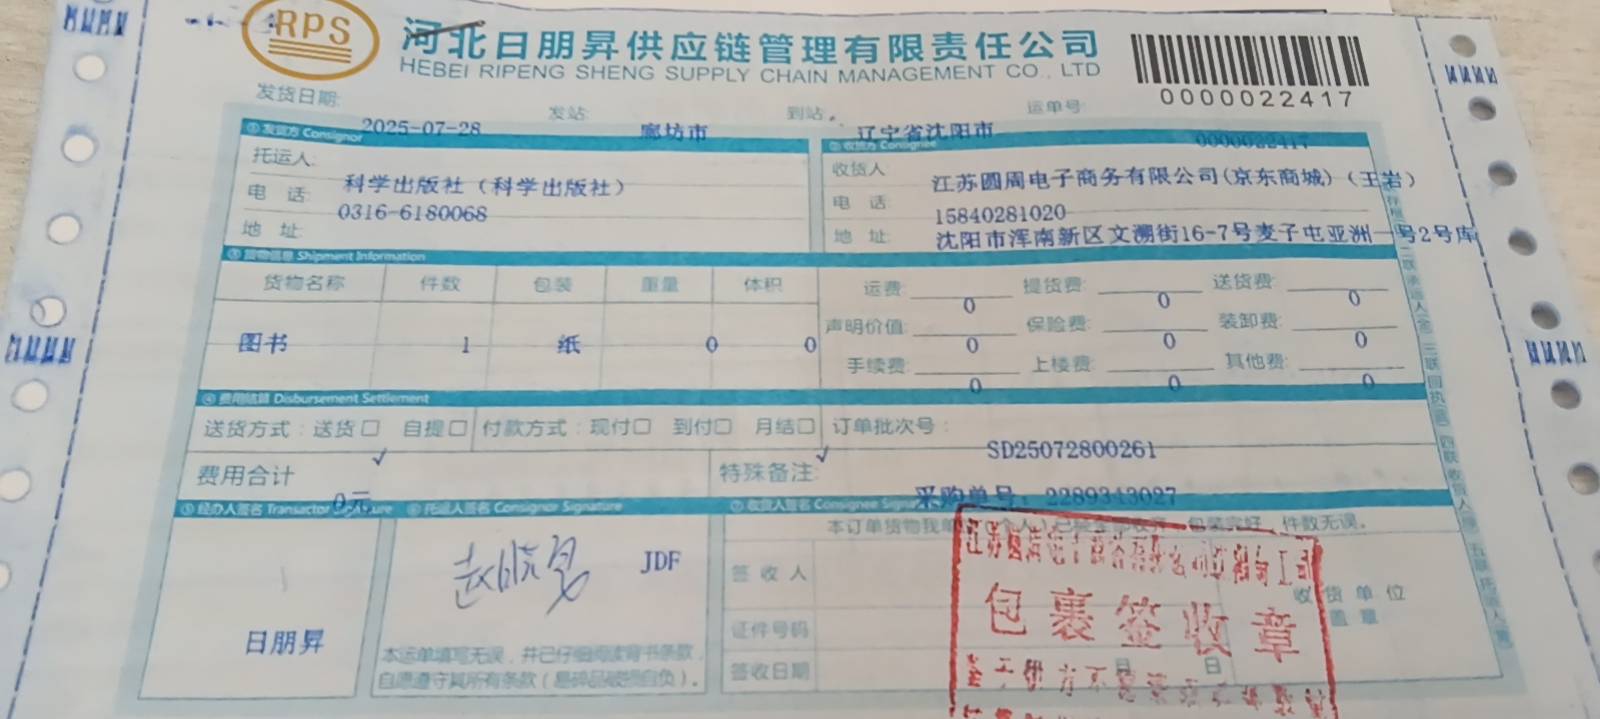 RPS
河北日朋昇供应链管理有限责任公司
HEBEI RIPENG SHENG SUPPLY CHAIN MANAGEMENT CO., LTD
0000022417
发货日期: 2025-07-28 发站: 廊坊市 到站: 辽宁省沈阳市 运单号: 0000022417
①发货方 Consignor
托运人: 科学出版社（科学出版社）
电 话: 0316-6180068
地 址:
②收货方 Consignee
收货人 江苏圆周电子商务有限公司(京东商城)（王岩）
电 话 15840281020
地 址 沈阳市浑南新区文溯街16-7号麦子屯亚洲一号2号库
③货物信息 Shipment Information
货物名称 件数 包装 重量 体积
图书 1 纸 0 0
运费: 0 提货费: 0 送货费: 0
声明价值: 0 保险费: 0 装卸费: 0
手续费: 0 上楼费: 0 其他费: 0
④费用结算 Disbursement Settlement
送货方式：送货□ 自提□ 付款方式：现付□ 到付□ 月结□ 订单批次号： SD25072800261
✓ ✓
费用合计 0元 特殊备注: 采购单号：2289343027
⑤经办人签名 Transactor Signature
日朋昇
⑥托运人签名 Consignor Signature
JDF
本运单填写无误，并已仔细阅读背书条款，
自愿遵守其所有条款（易碎品破损自负）。
⑦收货人签名 Consignee
件数无误。
签 收 人
证件号码
签收日期 月 日
收 货 单 位
盖 章
包裹签收章